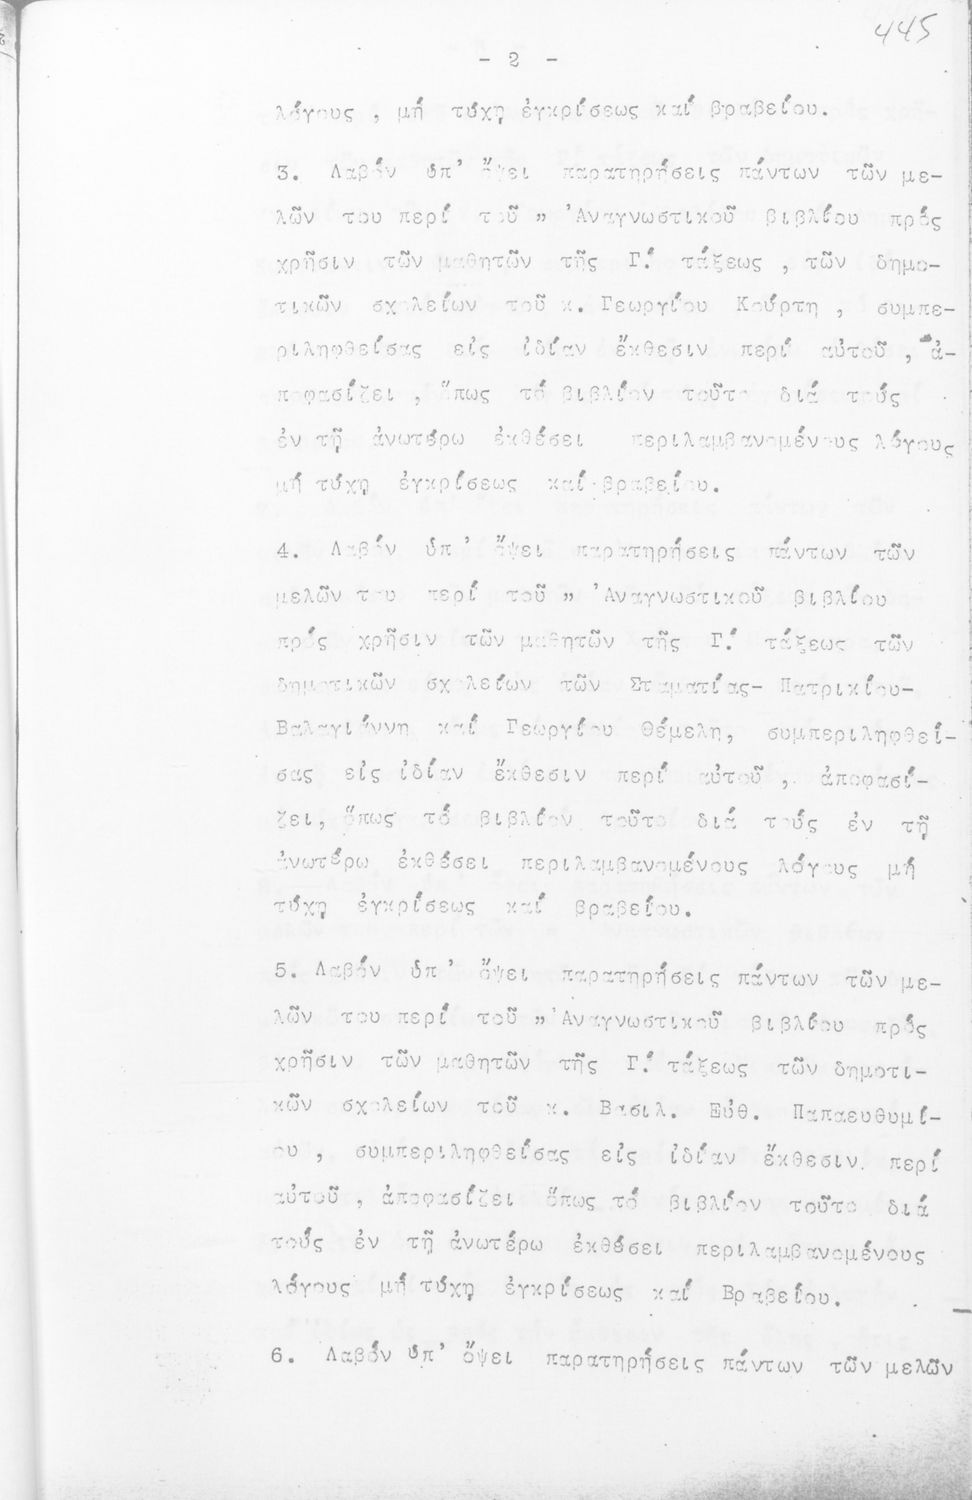 445
- 2 -
λόγους , μή τύχῃ ἐγκρίσεως καί βραβείου.
3. Λαβόν ὑπ' ὄψει παρατηρήσεις πάντων τῶν με-
λῶν του περί τοῦ „ Ἀναγνωστικοῦ βιβλίου πρός
χρῆσιν τῶν μαθητῶν τῆς Γ! τάξεως , τῶν δημο-
τικῶν σχολείων τοῦ κ. Γεωργίου Κούρτη , συμπε-
ριληφθείσας εἰς ἰδίαν ἔκθεσιν περί αὐτοῦ , ἀ-
ποφασίζει , ὅπως τό βιβλίον τοῦτο διά τούς
ἐν τῇ ἀνωτέρω ἐκθέσει περιλαμβανομένους λόγους
μή τύχῃ ἐγκρίσεως καί βραβείου.
4. Λαβόν ὑπ' ὄψει παρατηρήσεις πάντων τῶν
μελῶν του περί τοῦ „ Ἀναγνωστικοῦ βιβλίου
πρός χρῆσιν τῶν μαθητῶν τῆς Γ! τάξεως τῶν
δημοτικῶν σχολείων τῶν Σταματίας- Πατρικίου-
Βαλαγιάννη καί Γεωργίου Θέμελη, συμπεριληφθεί-
σας εἰς ἰδίαν ἔκθεσιν περί αὐτοῦ , ἀποφασί-
ζει, ὅπως τό βιβλίον τοῦτο διά τούς ἐν τῇ
ἀνωτέρω ἐκθέσει περιλαμβανομένους λόγους μή
τύχῃ ἐγκρίσεως καί βραβείου.
5. Λαβόν ὑπ' ὄψει παρατηρήσεις πάντων τῶν με-
λῶν του περί τοῦ „ Ἀναγνωστικοῦ βιβλίου πρός
χρῆσιν τῶν μαθητῶν τῆς Γ! τάξεως τῶν δημοτι-
κῶν σχολείων τοῦ κ. Βασιλ. Εὐθ. Παπαευθυμί-
ου , συμπεριληφθείσας εἰς ἰδίαν ἔκθεσιν περί
αὐτοῦ , ἀποφασίζει ὅπως τό βιβλίον τοῦτο διά
τούς ἐν τῇ ἀνωτέρω ἐκθέσει περιλαμβανομένους
λόγους μή τύχῃ ἐγκρίσεως καί Βραβείου.
6. Λαβόν ὑπ' ὄψει παρατηρήσεις πάντων τῶν μελῶν